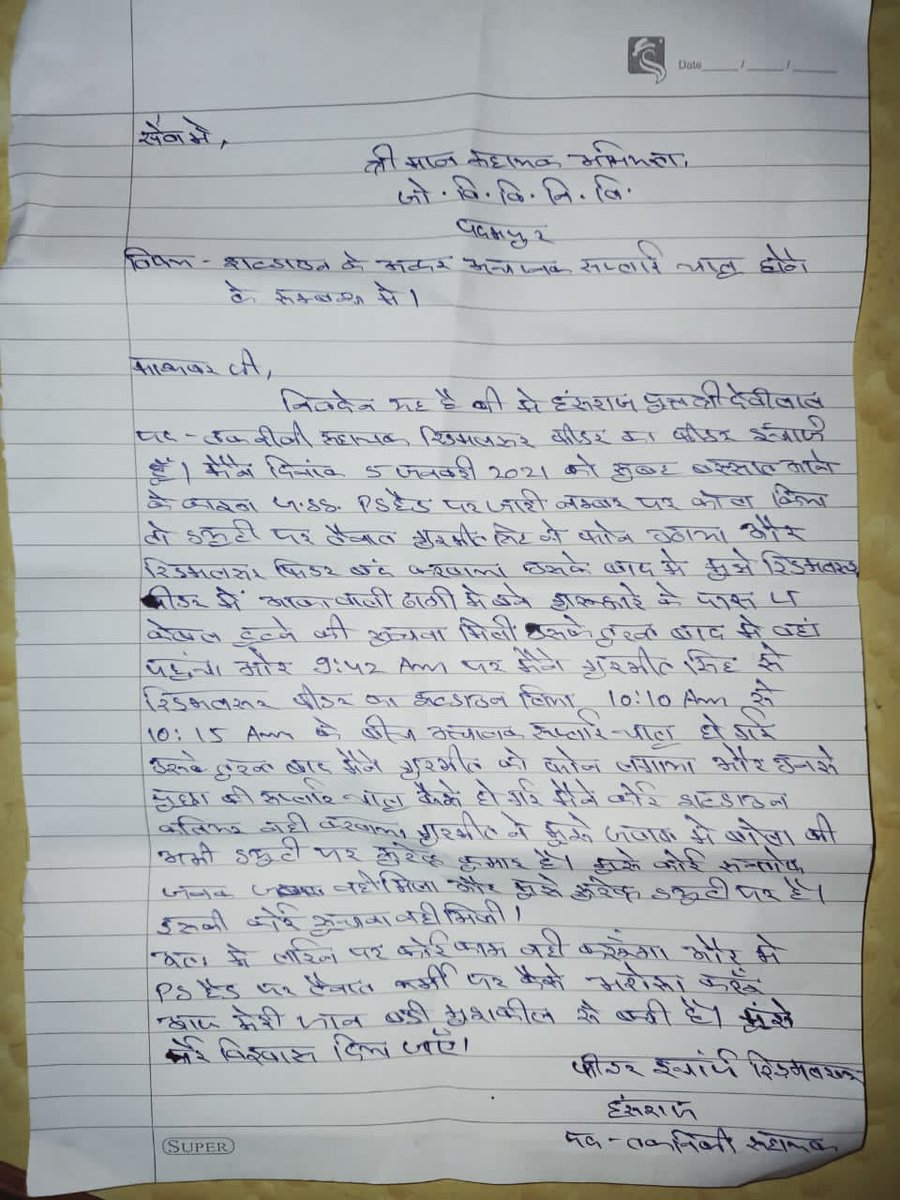 Date___/___/___
सेवा मे,
श्री मान सहायक अभियन्ता,
जो. वि. वि. नि. लि.
पदमपुर
विषय - शटडाउन के अन्दर अचानक सप्लाई चालु होने
के सम्बन्ध मे।
मान्यवर जी,
निवेदन यह है की मे हंसराज पुत्र श्री देवीलाल
पद - तकनीकी सहायक रिडमलसर फीडर का फीडर इन्चार्ज
हुँ। मैने दिनांक 5 जनवरी 2021 को सुबह बरसात आने
के कारण PS हैड पर जारी नम्बर पर कोल किया
तो डयुटी पर तैनात गुरमीत सिंह ने फोन उठाया और
रिडमलसर फिडर बंद करवाया उसके बाद मे मुझे रिडमलसर
फीडर में वाली ढाणी मे बने के पास
केबल टुटने की सुचना मिली उसके तुरन्त बाद मे वहां
पहुंचा और 9:42 Am पर मैने गुरमीत सिंह से
रिडमलसर फीडर का शटडाउन लिया 10:10 Am से
10:15 Am के बीच अचानक सप्लाई चालु हो गई
उसके तुरन्त बाद मैने गुरमीत को फोन लगाया और उनसे
पुछा की सप्लाई चालु कैसे हो गई मैने कोई शटडाउन
नही करवाया गुरमीत ने मुझे जवाब मे बोला की
अभी डयुटी पर कुमार है। मुझे कोई
जवाब नही मिला और मुझे डयुटी पर है।
इसकी कोई सुचना नही मिली।
अतः मे लाईन पर कोई काम नही करूंगा और मे
PS हैड पर तैनात कर्मी पर कैसे भरोसा करूँ
आज मेरी जान बडी मुशकील से बची है। मुझे
विश्वास दिलाया जाएँ।
फीडर इन्चार्ज रिडमलसर
हंसराज
पद - तकनिकी सहायक
SUPER